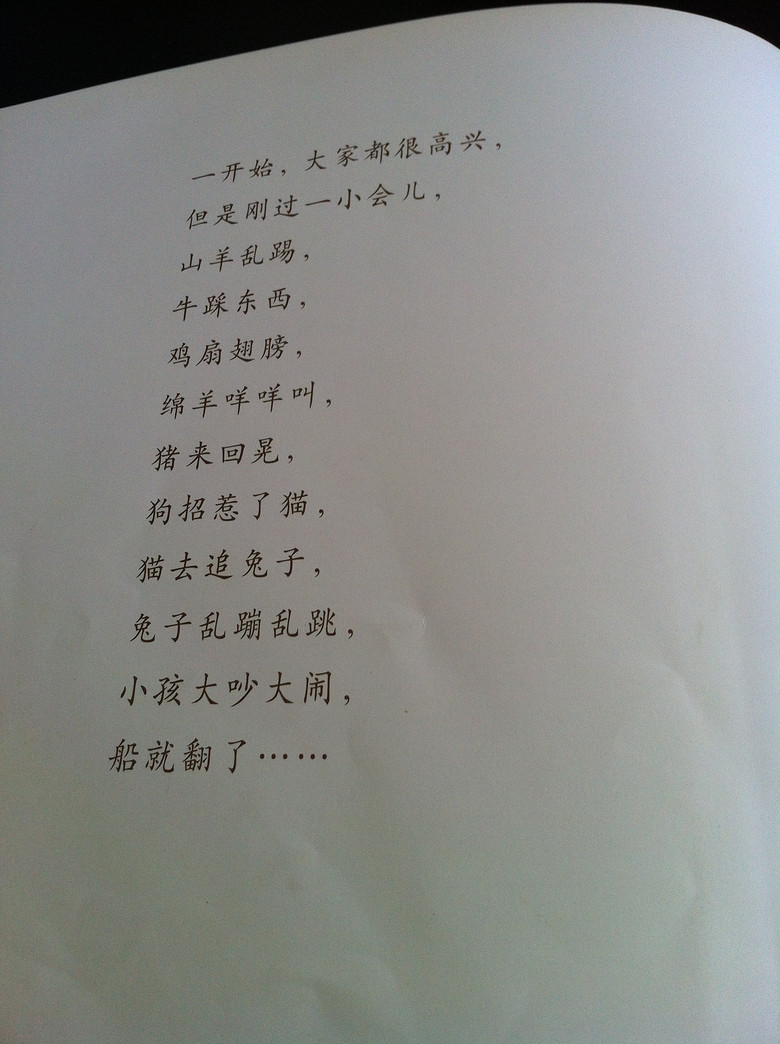 一开始，大家都很高兴，
但是刚过一小会儿，
山羊乱踢，
牛踩东西，
鸡扇翅膀，
绵羊咩咩叫，
猪来回晃，
狗招惹了猫，
猫去追兔子，
兔子乱蹦乱跳，
小孩大吵大闹，
船就翻了……